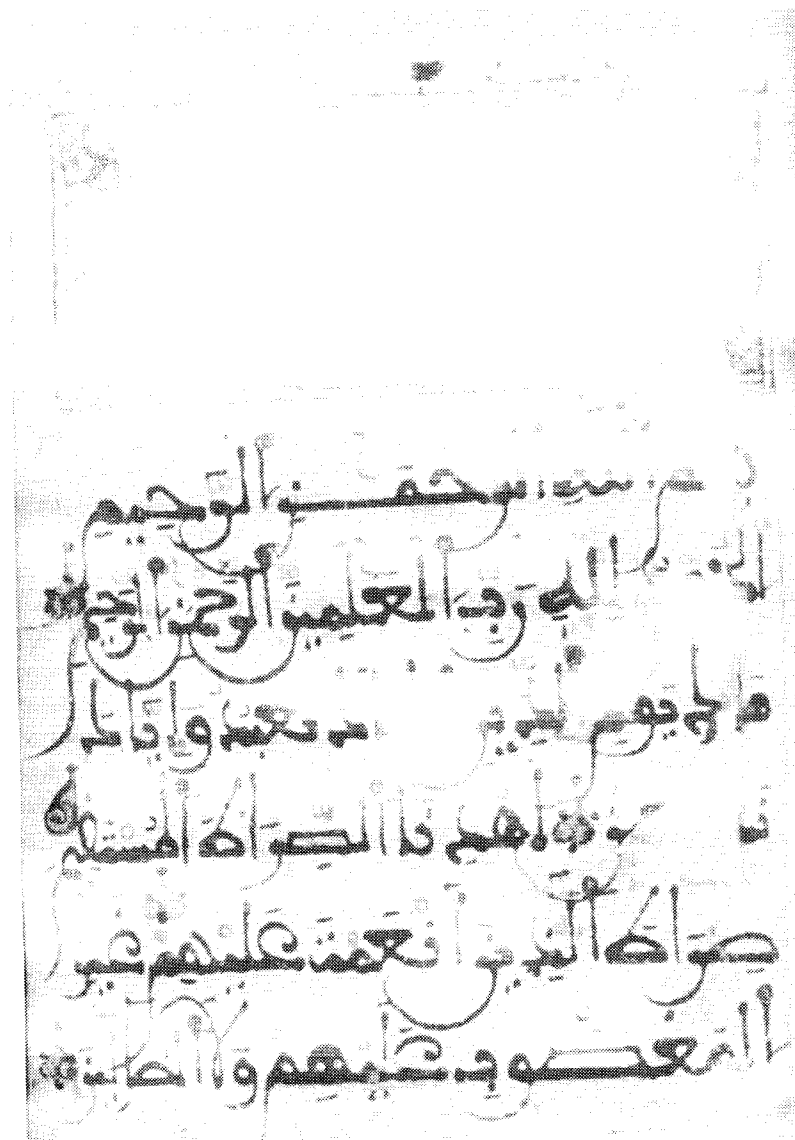 الرحمن الرحيم
لله رب العلمين الرحمن الرحيم
ملك يوم الدين نعبد واياك
اهدنا الصراط المستقيم
صراط الذين انعمت عليهم غير
المغضوب عليهم ولا الضالين